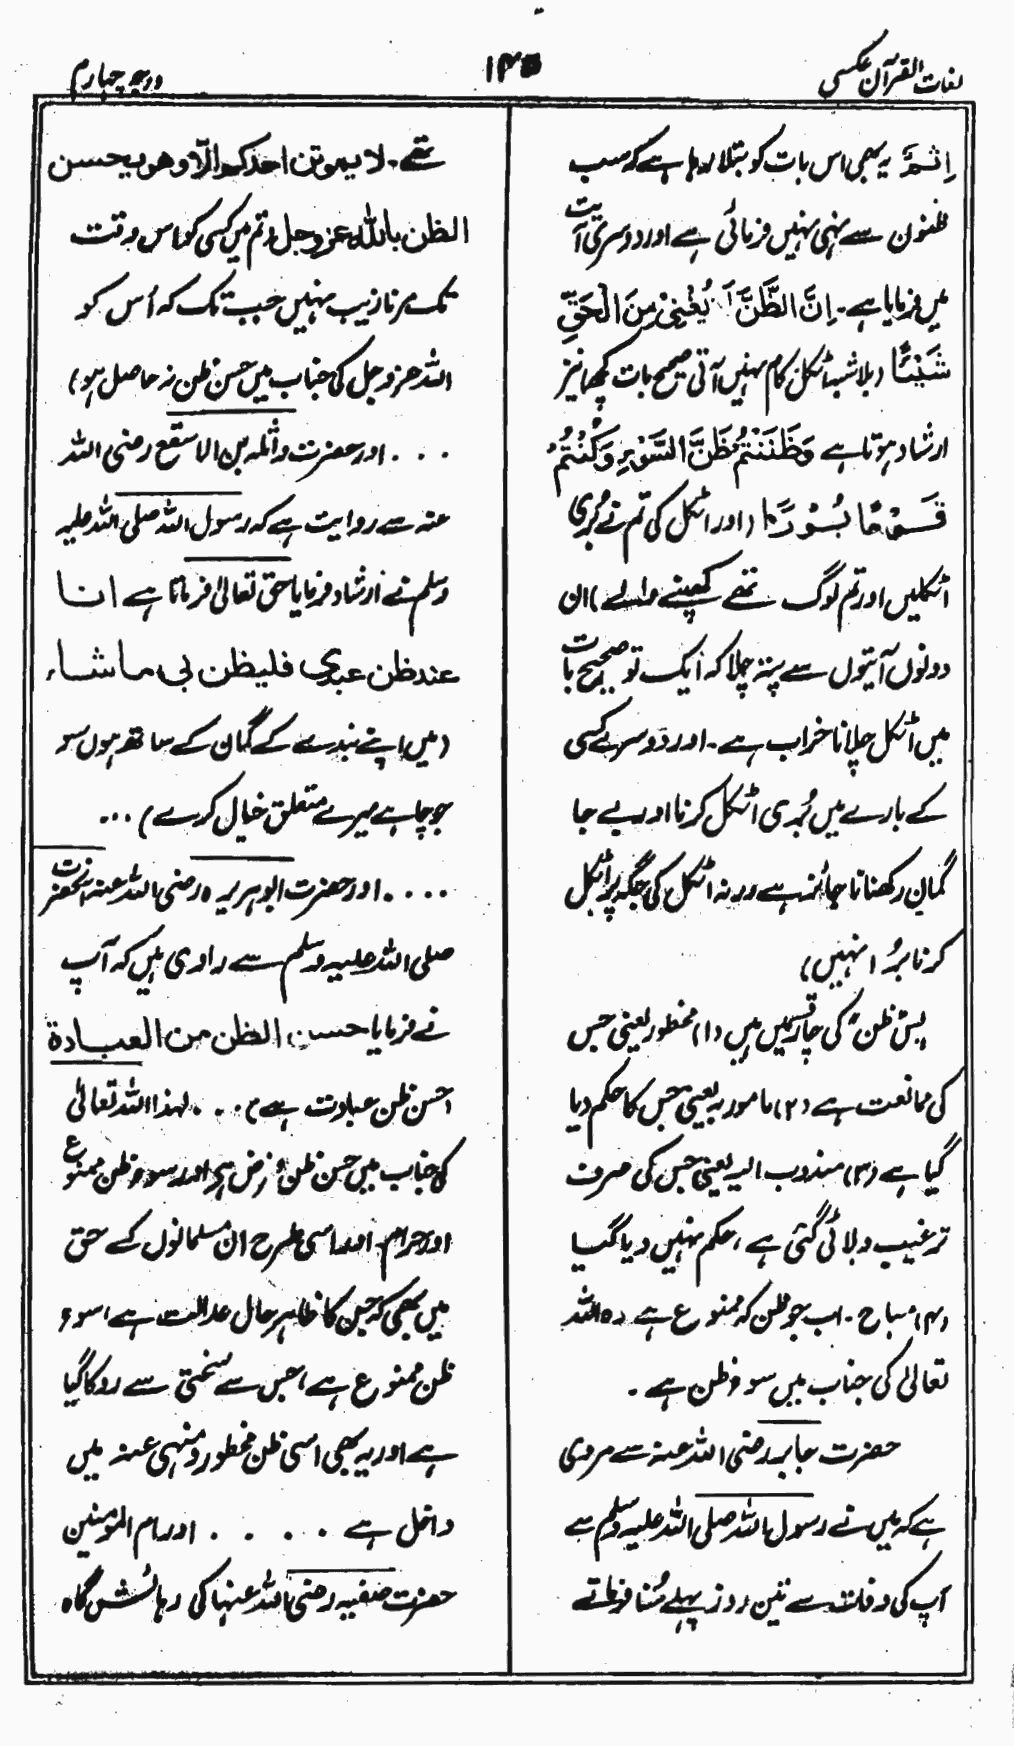 لغات القرآن عکسی
۱۴۵
درجہ چہارم
اِثْمٌ یہ بھی اس بات کو بتلا رہا ہے کہ سب
ظنون سے نہی نہیں فرمائی ہے اور دوسری آیت
میں فرمایا ہے۔ اِنَّ الظَّنَّ لَا یُغْنِیْ مِنَ الْحَقِّ
شَیْئًا (بلاشبہ اٹکل کام نہیں آتی صحیح بات کچھ) نیز
ارشاد ہوتا ہے وَظَنَنْتُمْ ظَنَّ السَّوْءِ وَکُنْتُمْ
قَوْمًا بُوْرًا (اور اٹکل کی تم نے بُری
اٹکلیں اور تم لوگ تھے کھپنے والے) ان
دونوں آیتوں سے پتہ چلا کہ ایک تو صحیح بات
میں اٹکل چلانا خراب ہے۔ اور دوسرے کسی
کے بارے میں بُری اٹکل کرنا اور بے جا
گمان رکھنا ناجائز ہے ورنہ اٹکل کی جگہ پر اٹکل
کرنا بُرا نہیں)
پس ظن کی چار قسمیں ہیں (۱) محظور یعنی جس
کی ممانعت ہے (۲) مامور بہ یعنی جس کا حکم دیا
گیا ہے (۳) مندوب الیہ یعنی جس کی صرف
ترغیب دلائی گئی ہے، حکم نہیں دیا گیا
(۴) مباح۔ اب جو ظن کہ ممنوع ہے وہ اللہ
تعالیٰ کی جناب میں سوءِ ظن ہے۔
حضرت جابر رضی اللہ عنہ سے مروی
ہے کہ میں نے رسول اللہ صلی اللہ علیہ وسلم سے
آپ کی وفات سے تین روز پہلے سُنا فرماتے
تھے۔ لا یموتن احدکم الّا وھو یحسن
الظن باللہ عز وجل (تم میں کسی کو اس وقت
تک مرنا زیب نہیں جب تک کہ اُس کو
اللہ عز وجل کی جناب میں حسن ظن نہ حاصل ہو)
. . . اور حضرت واثلہ بن الاسقع رضی اللہ
عنہ سے روایت ہے کہ رسول اللہ صلی اللہ علیہ
وسلم نے ارشاد فرمایا حق تعالیٰ فرماتا ہے انا
عند ظن عبدی فلیظن بی ما شاء
(میں اپنے بندے کے گمان کے ساتھ ہوں سو
جو چاہے میرے متعلق خیال کرے) ...
.... اور حضرت ابوہریرہ رضی اللہ عنہ آنحضرت
صلی اللہ علیہ وسلم سے راوی ہیں کہ آپ
نے فرمایا حسن الظن من العبادة
(حسن ظن عبادت ہے) . . . لہذا اللہ تعالیٰ
کی جناب میں حسن ظن فرض ہے اور سوء ظن ممنوع
اور حرام۔ اور اسی طرح ان مسلمانوں کے حق
میں بھی کہ جن کا ظاہر حال عدالت ہے، سوء
ظن ممنوع ہے، جس سے سختی سے روکا گیا
ہے اور یہ بھی اسی ظن محظور و منہی عنہ میں
داخل ہے . . . . اور ام المومنین
حضرت صفیہ رضی اللہ عنہا کی رہائش گاہ